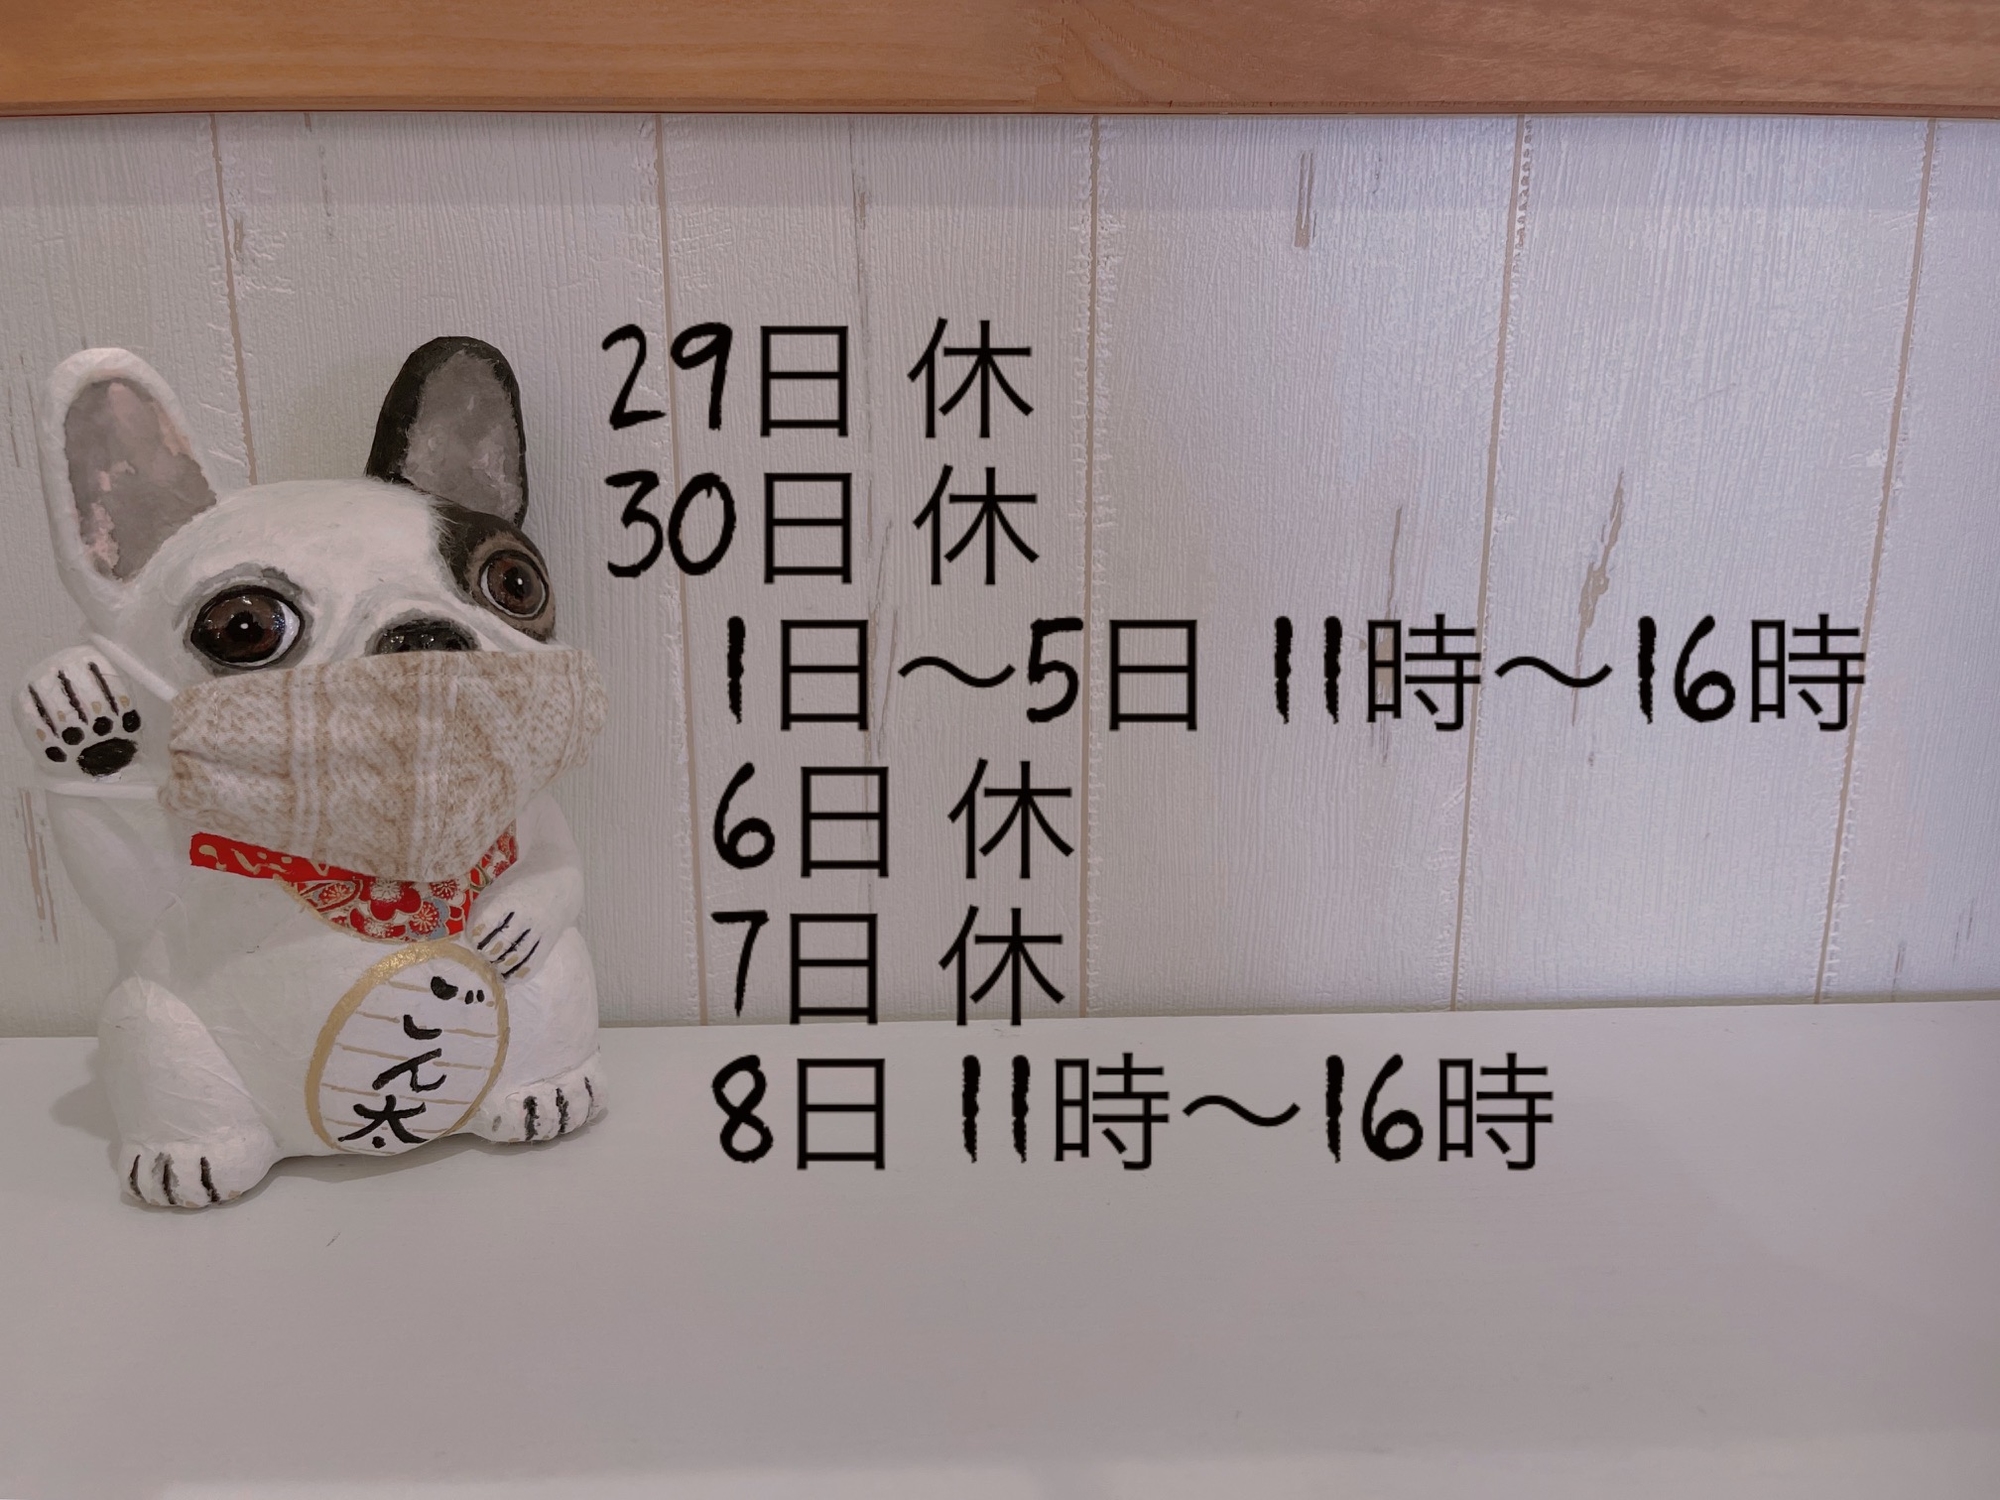 29日 休
30日 休
1日〜5日 11時〜16時
6日 休
7日 休
8日 11時〜16時
ごん太